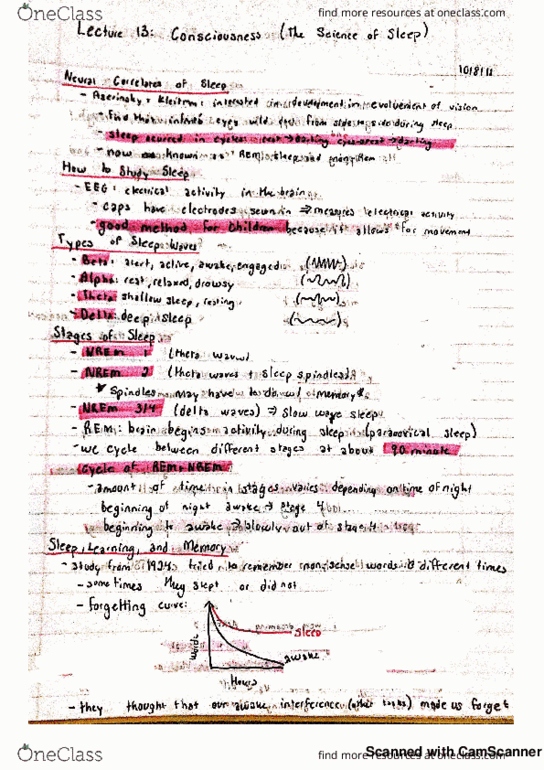 OneClass
find more resources at oneclass.com
Lecture 13: Consciousness (The Science of Sleep)
10/8/18
Neural Correlates of Sleep
- Aserinsky + Kleitman: intrested in development in evolvement of vision
- find that infants eyes wild from side to side during sleep
- sleep ocurred in cycles rest → darting
- now known as REM sleep and REM
How to Study Sleep
- EEG: electrical activity in the brain
- caps have electrodes sewn in ⇒ measures electrical activity
- good method for children because it allows for movement
Types of Sleep Waves
- Beta: alert, active, awake, engaged
- Alpha: rest, relaxed, drowsy
- Theta: shallow sleep, resting
- Delta: deep sleep
Stages of Sleep
- NREM 1 (theta waves)
- NREM 2 (theta waves + sleep spindles)
Spindles may have to do w/ memory
- NREM 3/4 (delta waves) ⇒ slow wave sleep
- REM: brain begins activity during sleep (paradoxical sleep)
- we cycle between different stages at about 90 minute
Cycle of REM + NREM
- amount of time in stages varies depending on time of night
beginning of night awake → stage 4
beginning to awake → slowly out of stage 4
Sleep, Learning, and Memory
- study from 1924: tried to remember nonsense words @ different times
- sometimes they slept or did not
- Forgetting curve:
Words
Sleep
awake
Hours
- they thought that our awake interference (other tasks) made us forget
OneClass
find more resources at oneclass.com
Scanned with CamScanner